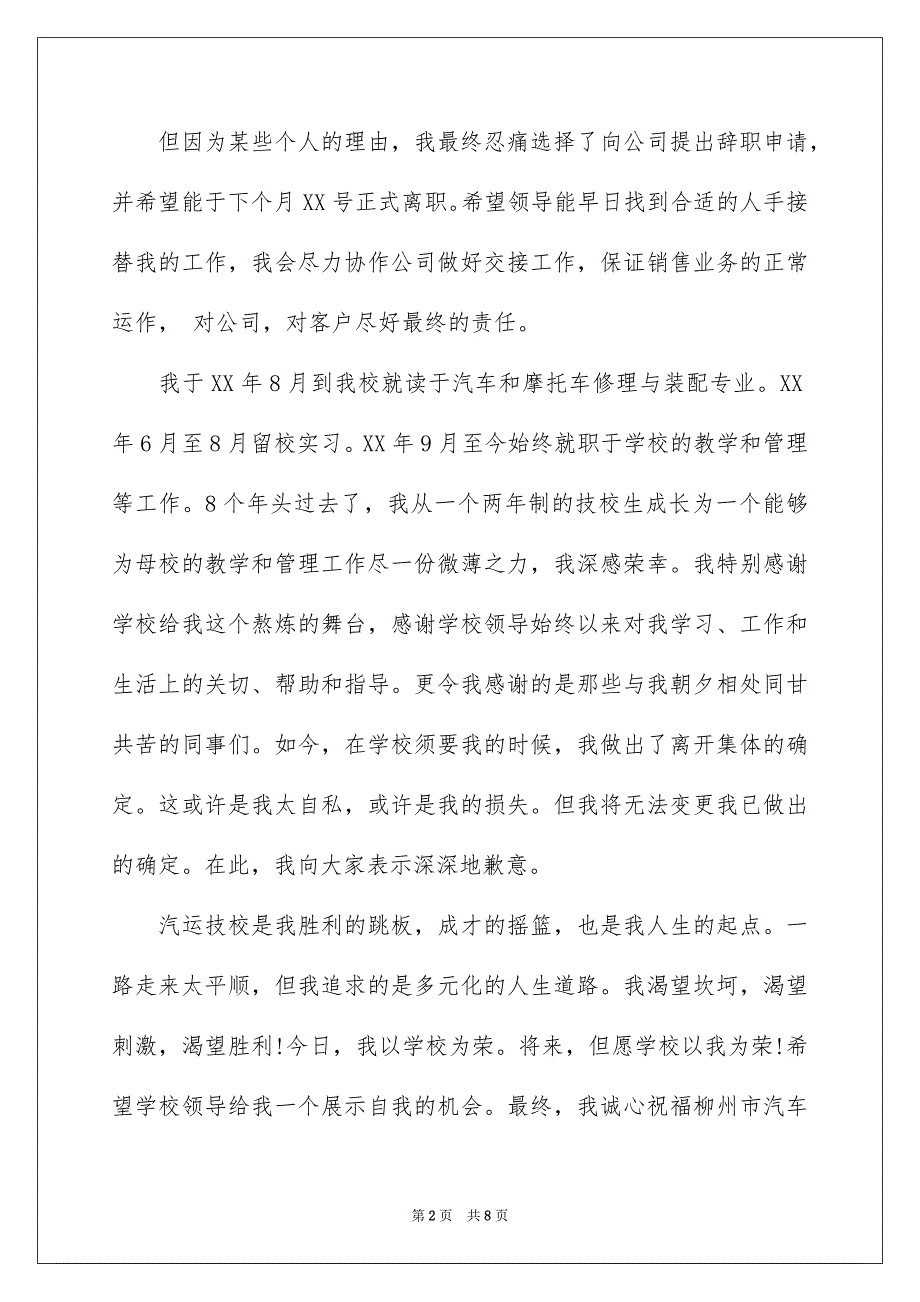 但因为某些个人的理由，我最终忍痛选择了向公司提出辞职申请，
并希望能于下个月 XX 号正式离职。希望领导能早日找到合适的人手接
替我的工作，我会尽力协作公司做好交接工作，保证销售业务的正常
运作， 对公司，对客户尽好最终的责任。
我于 XX 年 8 月到我校就读于汽车和摩托车修理与装配专业。XX
年 6 月至 8 月留校实习。XX 年 9 月至今始终就职于学校的教学和管理
等工作。8 个年头过去了，我从一个两年制的技校生成长为一个能够
为母校的教学和管理工作尽一份微薄之力，我深感荣幸。我特别感谢
学校给我这个熬炼的舞台，感谢学校领导始终以来对我学习、工作和
生活上的关切、帮助和指导。更令我感谢的是那些与我朝夕相处同甘
共苦的同事们。如今，在学校须要我的时候，我做出了离开集体的确
定。这或许是我太自私，或许是我的损失。但我将无法变更我已做出
的确定。在此，我向大家表示深深地歉意。
汽运技校是我胜利的跳板，成才的摇篮，也是我人生的起点。一
路走来太平顺，但我追求的是多元化的人生道路。我渴望坎坷，渴望
刺激，渴望胜利!今日，我以学校为荣。将来，但愿学校以我为荣!希
望学校领导给我一个展示自我的机会。最终，我诚心祝福柳州市汽车
第 2 页 共 8 页